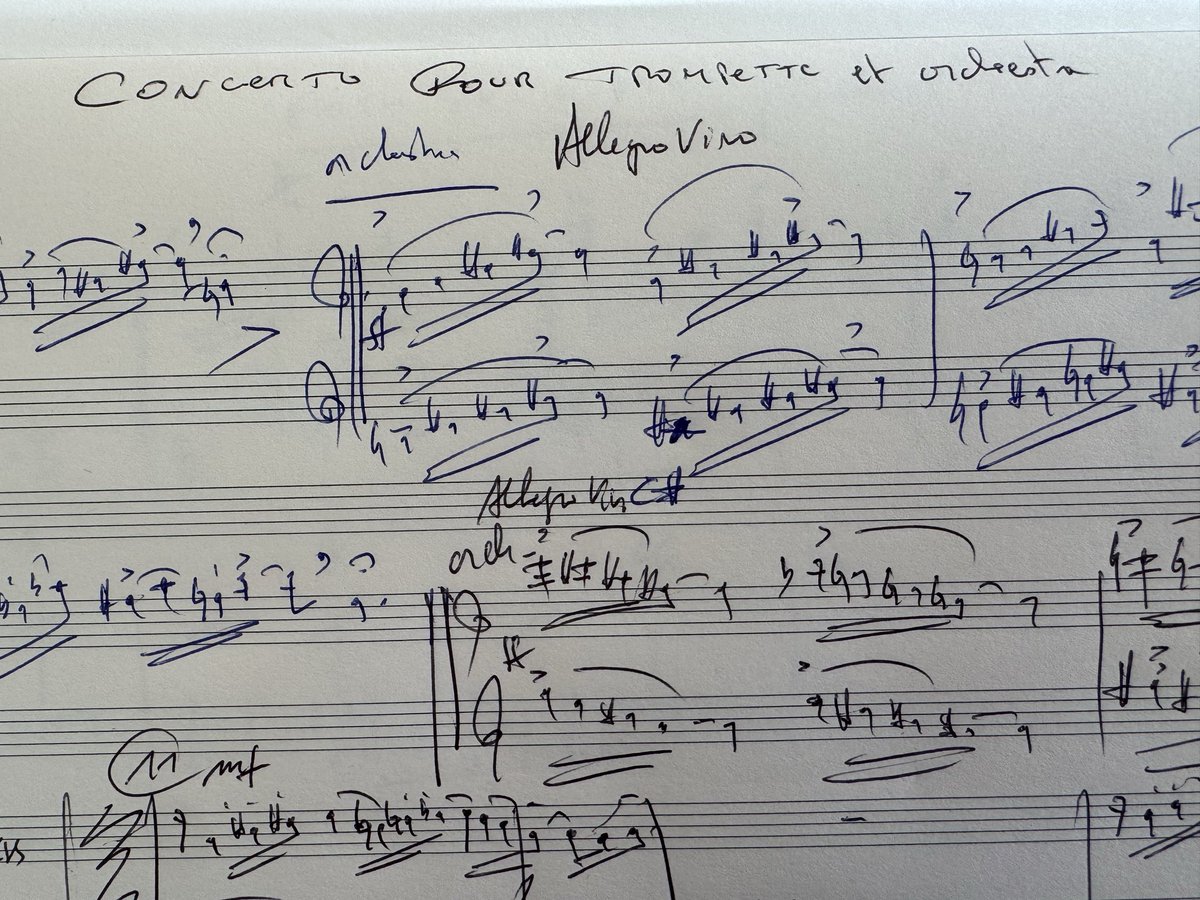 CONCERTO POUR TROMPETTE et orchestra
Allegro Vivo
Allegro Vivo C#
orch
11 mf